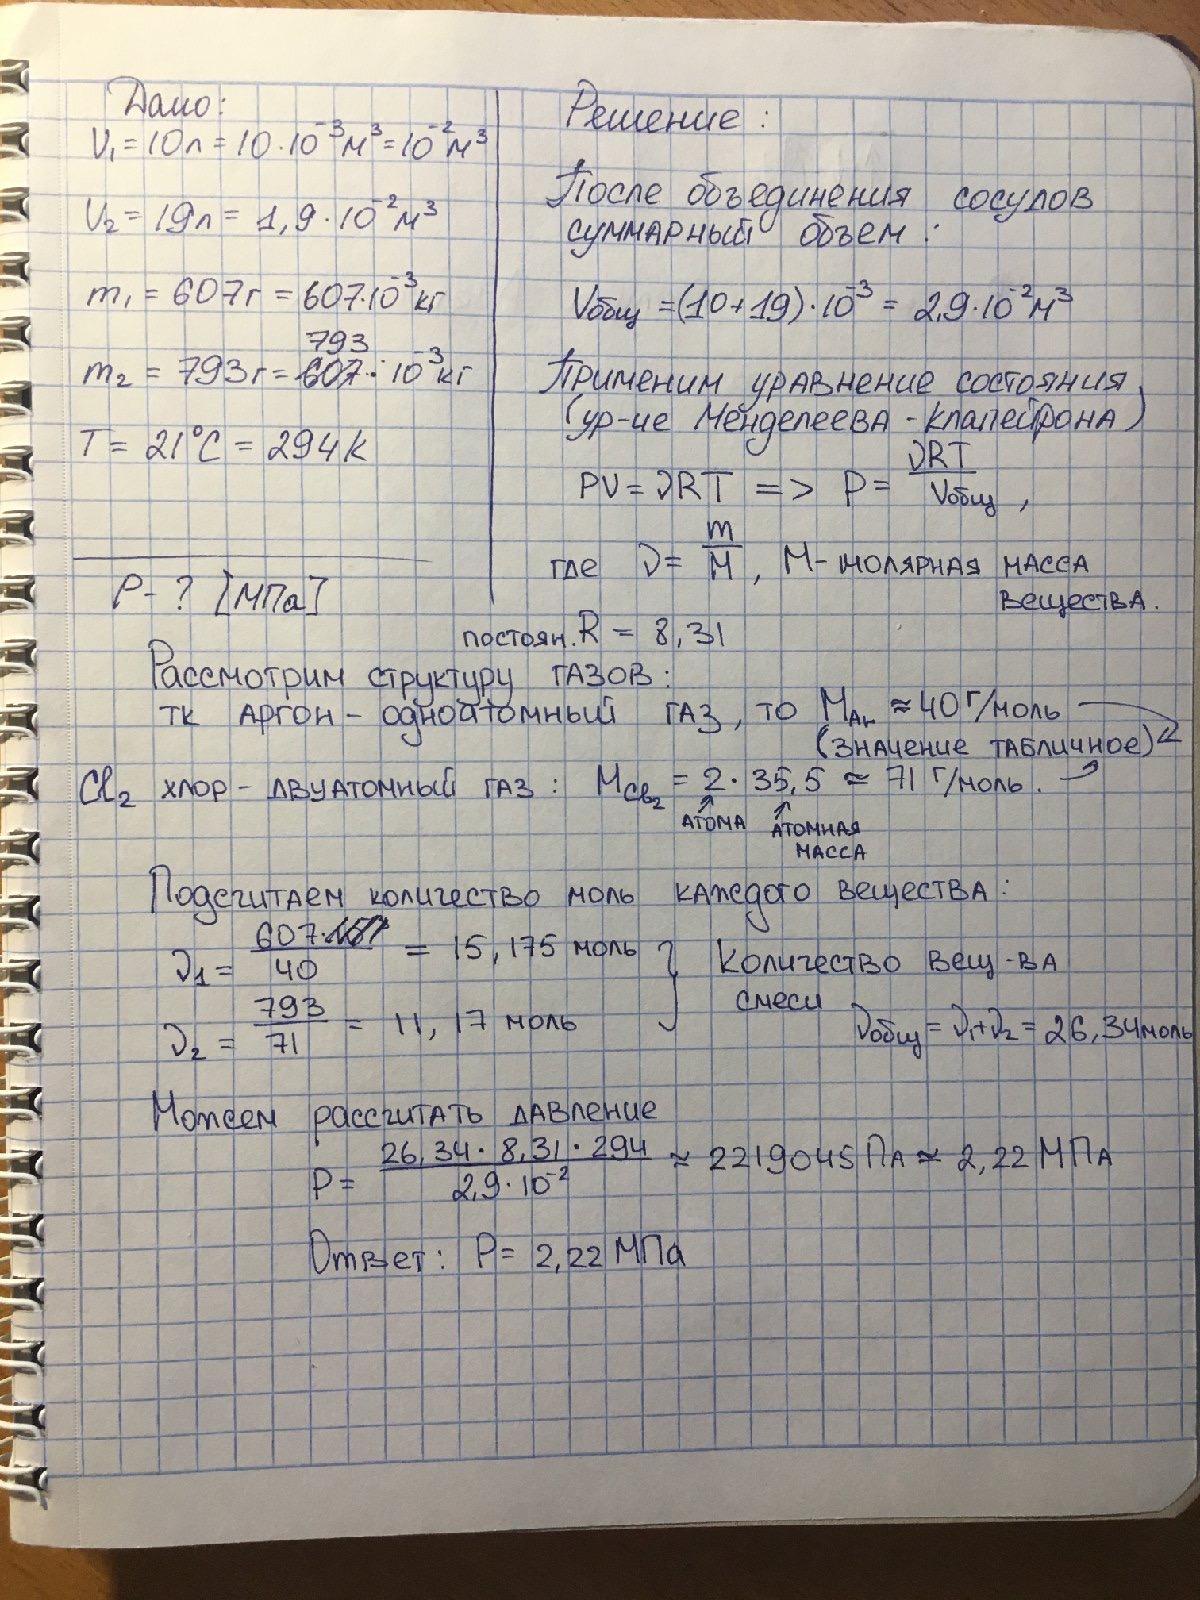 Дано:
V₁ = 10л = 10·10⁻³м³ = 10⁻²м³
V₂ = 19л = 1,9·10⁻²м³
m₁ = 607г = 607·10⁻³кг
793
m₂ = 793г = 607·10⁻³кг
T = 21°C = 294K
P - ? [МПа]
Решение:
После объединения сосудов
суммарный объем:
Vобщ = (10+19)·10⁻³ = 2,9·10⁻²м³
Применим уравнение состояния
(ур-ие Менделеева - Клапейрона)
PV = νRT => P = νRT/Vобщ,
где ν = m/M, M - молярная масса
вещества.
постоян. R = 8,31
Рассмотрим структуру газов:
тк Аргон - одноатомный газ, то M_Ar ≈ 40 г/моль
(значение табличное)
Cl₂ хлор - двуатомный газ: M_Cl₂ = 2 · 35,5 ≈ 71 г/моль.
атома атомная
масса
Подсчитаем количество моль каждого вещества:
ν₁ = 607/40 = 15,175 моль
ν₂ = 793/71 = 11,17 моль
Количество вещ-ва
смеси
νобщ = ν₁+ν₂ = 26,34 моль
Можем рассчитать давление
P = 26,34 · 8,31 · 294/2,9·10⁻² ≈ 2219045 Па ≈ 2,22 МПа
Ответ: P = 2,22 МПа